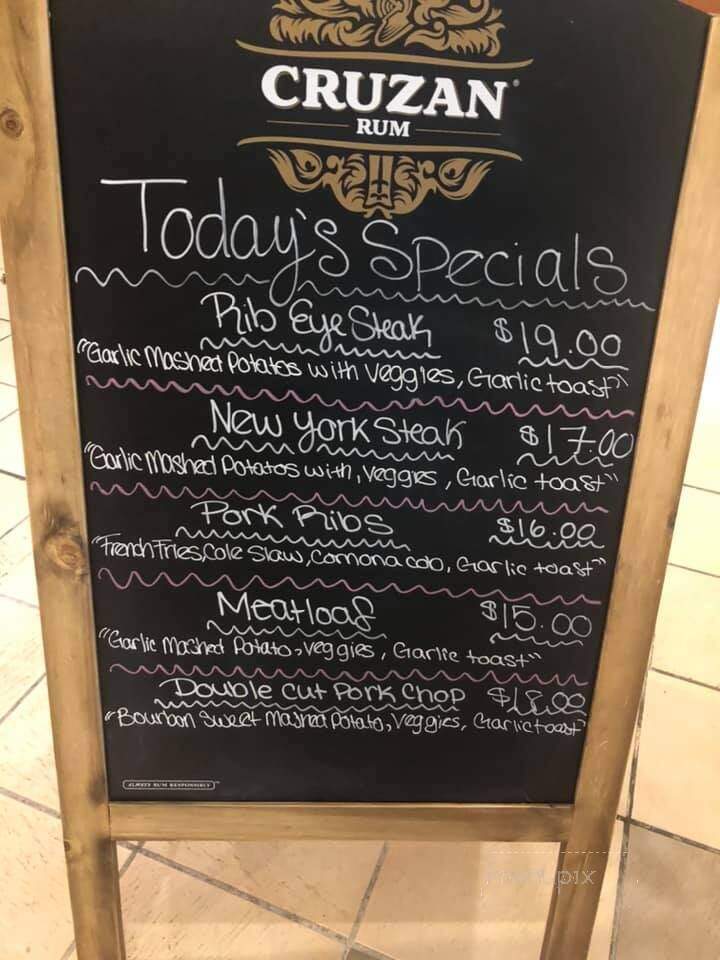 CRUZAN®
RUM
Today's Specials
Rib Eye Steak $19.00
"Garlic Mashed Potatos with Veggies, Garlic toast"
New York Steak $17.00
"Garlic Mashed Potatos with, Veggies, Garlic toast"
Pork Ribs $16.00
"French Fries, Cole Slaw, Corn on a cob, Garlic toast"
Meatloaf $15.00
"Garlic Mashed Potato, veggies, Garlic toast"
Double Cut Pork Chop $18.00
"Bourbon Sweet Mashed Potato, Veggies, Garlic toast"
ALWAYS RUM RESPONSIBLY